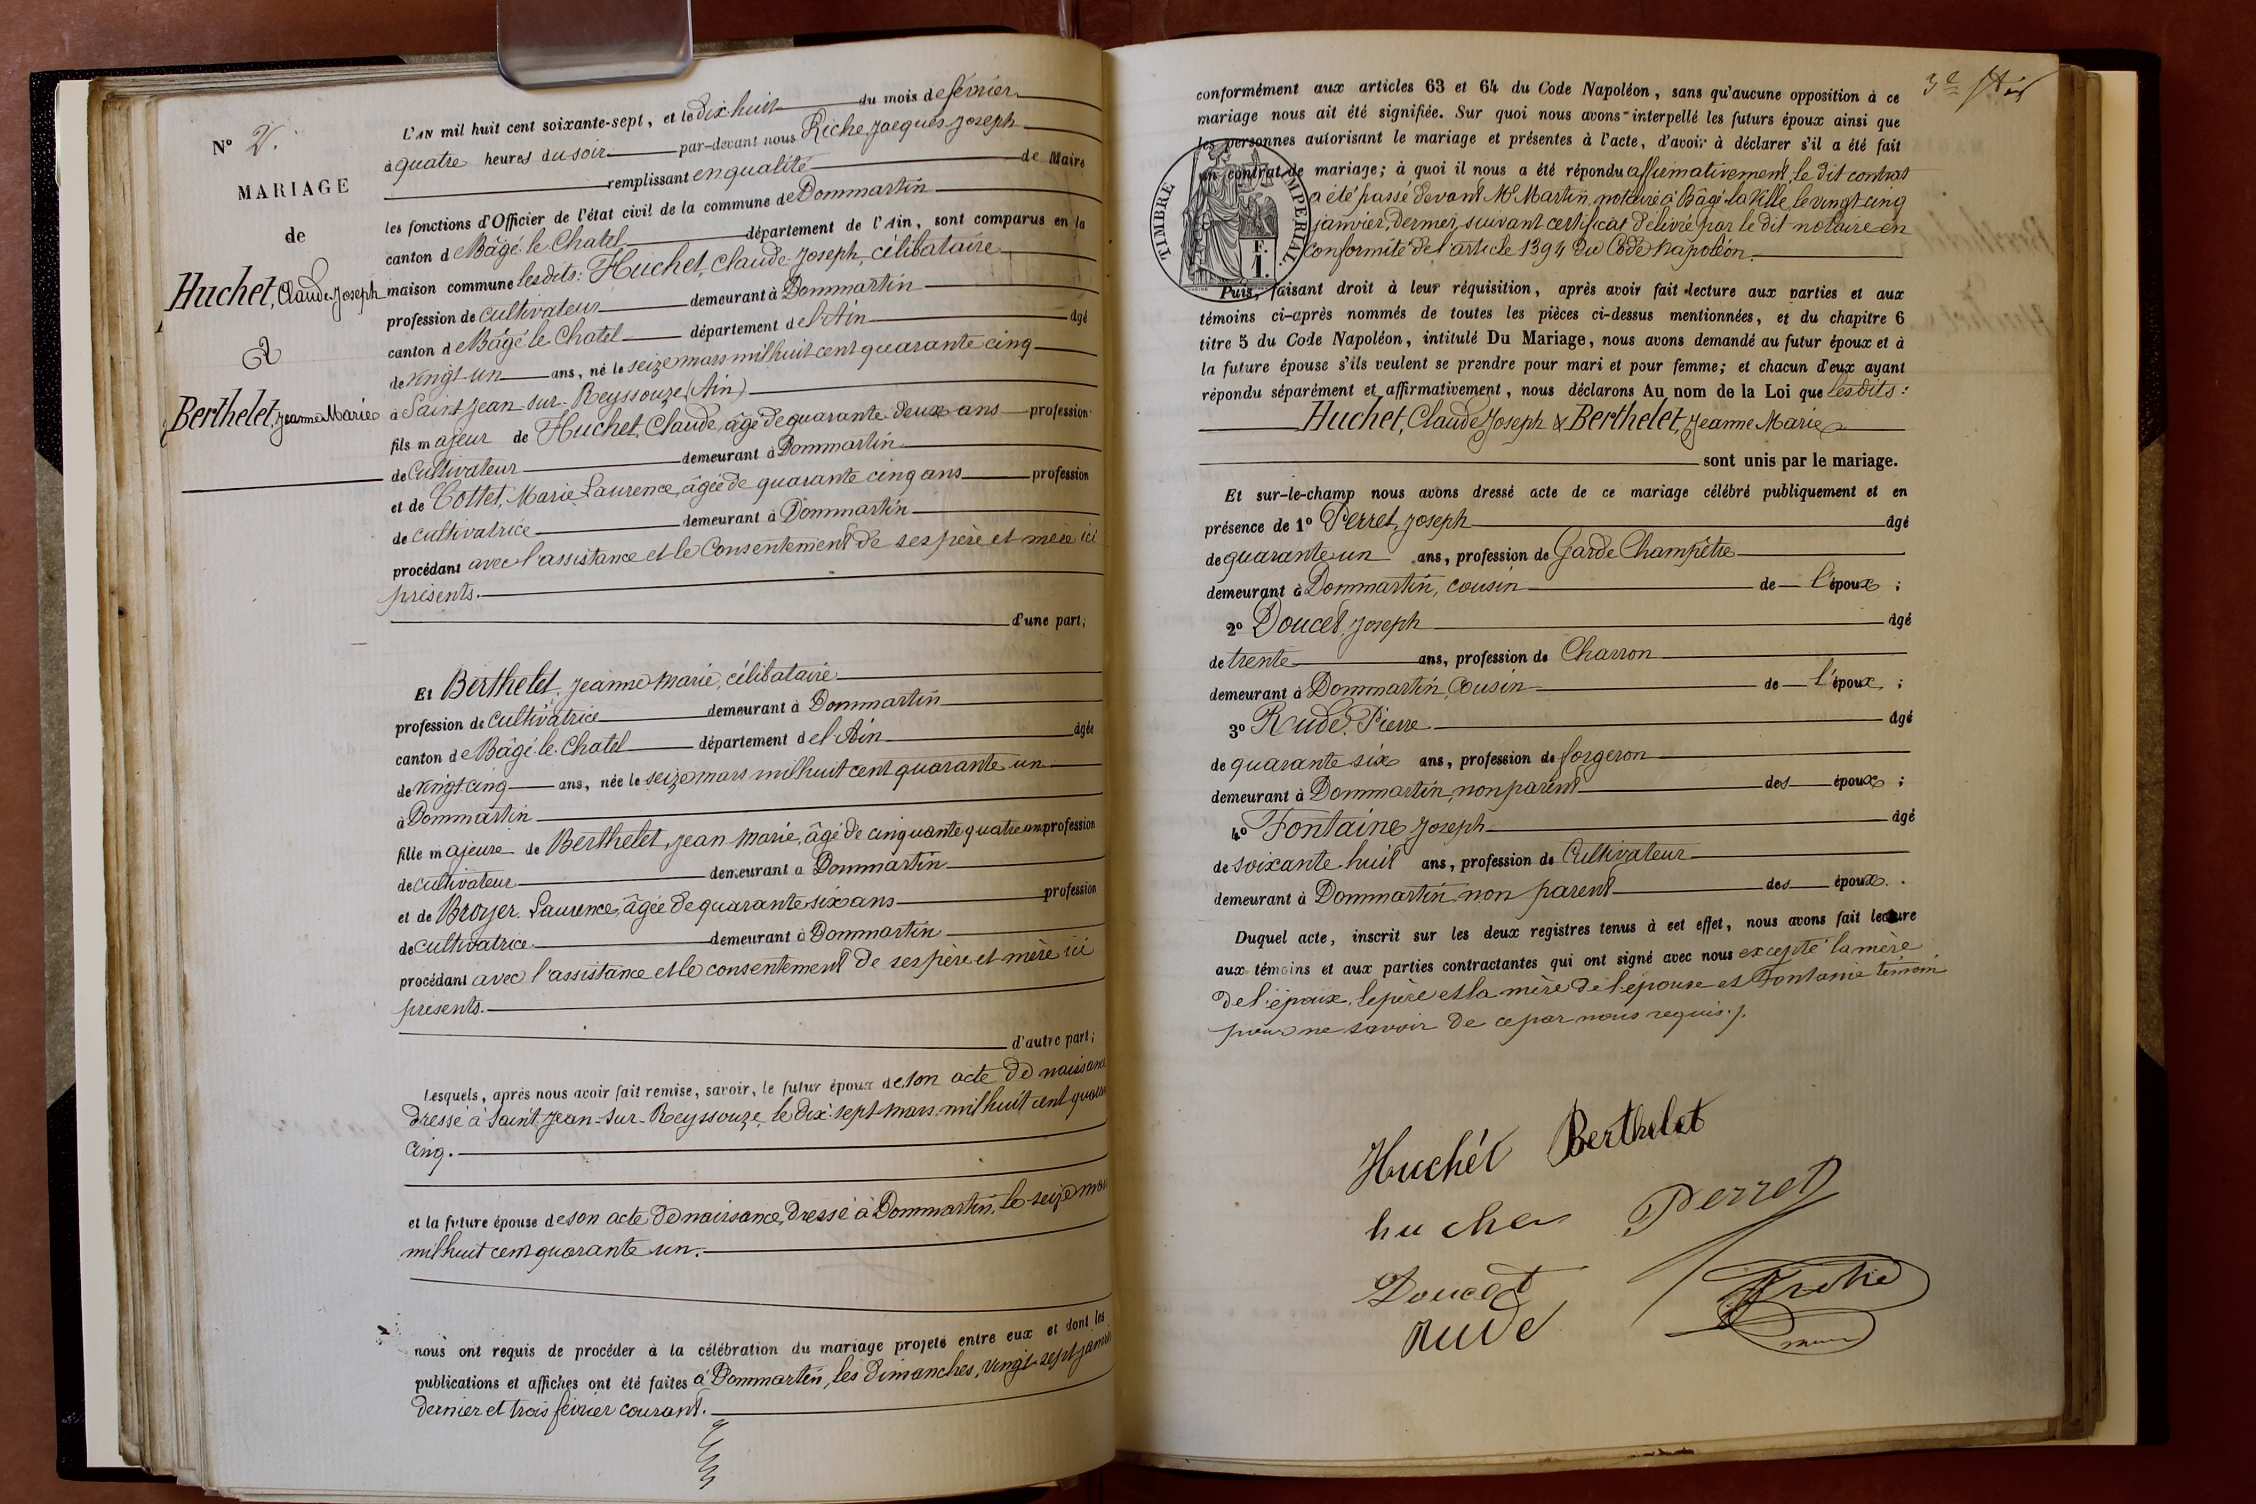 N° 2.
MARIAGE
de
Huchet, Claude Joseph
&
Berthelet, Jeanne Marie
L'AN mil huit cent soixante-sept, et le dix huit du mois de février
à quatre heures du soir par-devant nous Riche, Jacques Joseph
remplissant en qualité de Maire
les fonctions d'Officier de l'état civil de la commune de Dommartin
canton de Bâgé le Chatel département de l'Ain, sont comparus en la
maison commune lesdits: Huchet, Claude Joseph, célibataire
profession de cultivateur demeurant à Dommartin
canton de Bâgé le Chatel département de l'Ain âgé
de vingt un ans, né le seize mars mil huit cent quarante cinq
à Saint Jean-sur-Reyssouze (Ain)
fils majeur de Huchet, Claude, âgé de quarante deux ans profession
de Cultivateur demeurant à Dommartin
et de Cottet, Marie Laurence, âgée de quarante cinq ans profession
de cultivatrice demeurant à Dommartin
procédant avec l'assistance et le Consentement de ses père et mère ici
présents.
d'une part;
Et Berthelet, Jeanne Marie, célibataire
profession de cultivatrice demeurant à Dommartin
canton de Bâgé-le-Chatel département de l'Ain âgée
de vingt cinq ans, née le seize mars mil huit cent quarante un
à Dommartin
fille majeure de Berthelet, Jean Marie, âgé de cinquante quatre ans profession
de cultivateur demeurant à Dommartin
et de Broyer, Laurence, âgée de quarante six ans profession
de cultivatrice demeurant à Dommartin
procédant avec l'assistance et le consentement de ses père et mère ici
présents.
d'autre part;
Lesquels, après nous avoir fait remise, savoir, le futur époux de son acte de naissance
dressé à Saint-Jean-sur-Reyssouze, le dix-sept mars mil huit cent quarante
cinq.
et la future épouse de son acte de naissance, dressé à Dommartin, le seize mars
mil huit cent quarante un.
nous ont requis de procéder à la célébration du mariage projeté entre eux et dont les
publications et affiches ont été faites à Dommartin, les dimanches, vingt-sept janvier
dernier et trois février courant.
conformément aux articles 63 et 64 du Code Napoléon, sans qu'aucune opposition à ce
mariage nous ait été signifiée. Sur quoi nous avons interpellé les futurs époux ainsi que
les personnes autorisant le mariage et présentes à l'acte, d'avoir à déclarer s'il a été fait
un contrat de mariage; à quoi il nous a été répondu affirmativement, le dit contrat
a été passé devant Me Martin, notaire à Bâgé-la-Ville, le vingt cinq
janvier dernier, suivant certificat délivré par le dit notaire en
conformité de l'article 1394 du Code Napoléon.
TIMBRE IMPÉRIAL
F.
1.
Puis, faisant droit à leur réquisition, après avoir fait lecture aux parties et aux
témoins ci-après nommés de toutes les pièces ci-dessus mentionnées, et du chapitre 6
titre 5 du Code Napoléon, intitulé Du Mariage, nous avons demandé au futur époux et à
la future épouse s'ils veulent se prendre pour mari et pour femme; et chacun d'eux ayant
répondu séparément et affirmativement, nous déclarons Au nom de la Loi que lesdits:
Huchet, Claude Joseph & Berthelet, Jeanne Marie
sont unis par le mariage.
Et sur-le-champ nous avons dressé acte de ce mariage célébré publiquement et en
présence de 1° Perret, Joseph âgé
de quarante un ans, profession de Garde Champêtre
demeurant à Dommartin, cousin de l'époux ;
2° Doucet, Joseph âgé
de trente ans, profession de Charron
demeurant à Dommartin, Cousin de l'époux ;
3° Rude, Pierre âgé
de quarante six ans, profession de forgeron
demeurant à Dommartin, non parent des époux ;
4° Fontaine, Joseph âgé
de soixante-huit ans, profession de Cultivateur
demeurant à Dommartin, non parent des époux.
Duquel acte, inscrit sur les deux registres tenus à cet effet, nous avons fait lecture
aux témoins et aux parties contractantes qui ont signé avec nous excepté la mère
de l'époux, le père et la mère de l'épouse et Fontaine témoin
pour ne savoir de ce par nous requis.
Huchet Berthelet
huchet Perret
Doucet Riche
Rude maire